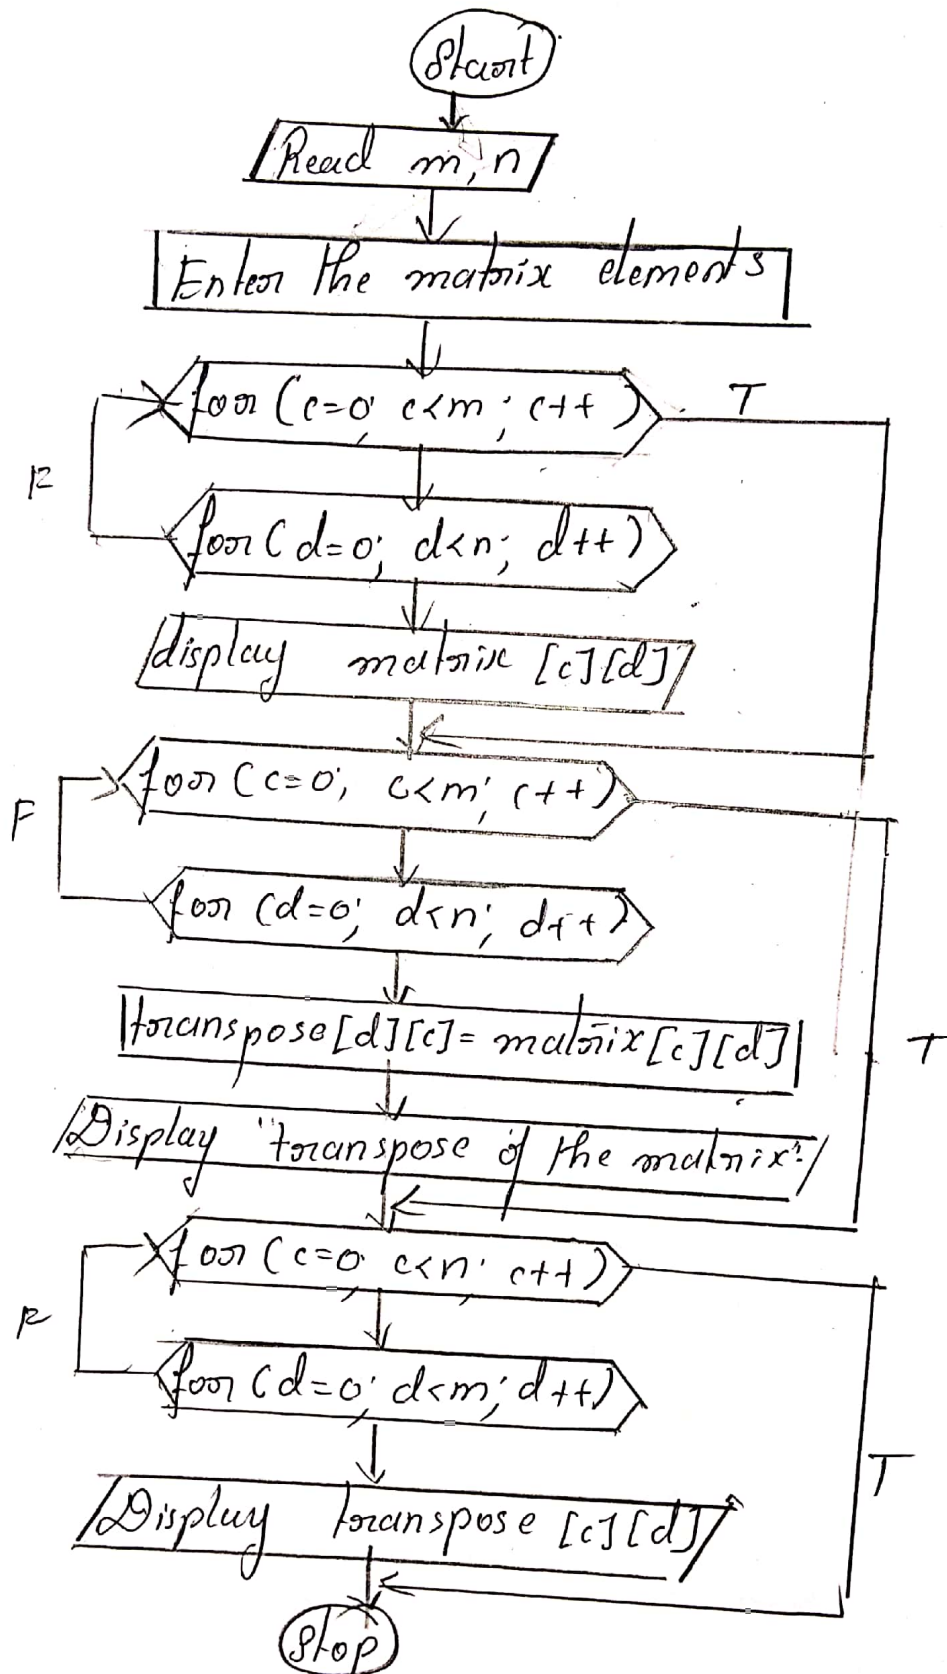 Start
Read m, n
Enter the matrix elements
for (c=0; c<m; c++)
T
F
for (d=0; d<n; d++)
display matrix [c][d]
for (c=0; c<m; c++)
F
for (d=0; d<n; d++)
transpose[d][c]= matrix[c][d]
T
Display "transpose of the matrix"
for (c=0; c<n; c++)
F
for (d=0; d<m; d++)
T
Display transpose [c][d]
Stop